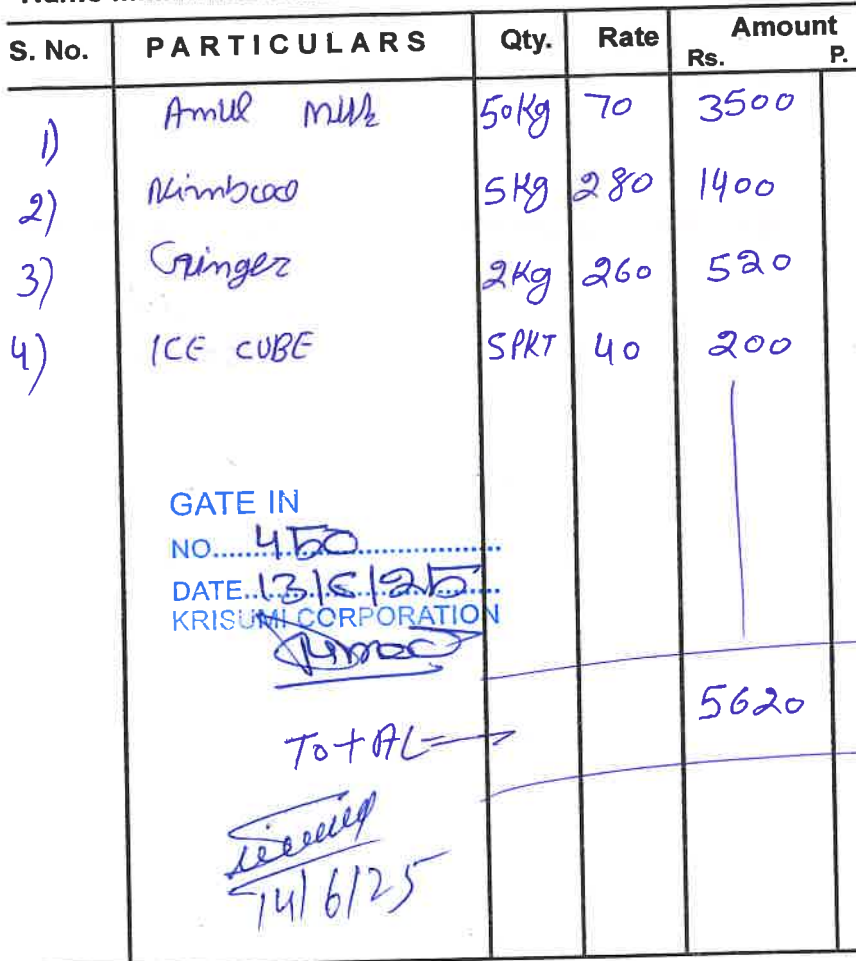 S. No. PARTICULARS Qty. Rate Amount
Rs. P.
1) Amul Milk 50Kg 70 3500
2) Nimboo 5Kg 280 1400
3) Ginger 2Kg 260 520
4) ICE CUBE 5PKT 40 200
GATE IN
NO. 450
DATE. 13/6/25
KRISUMI CORPORATION
5620
TotAL
14/6/25